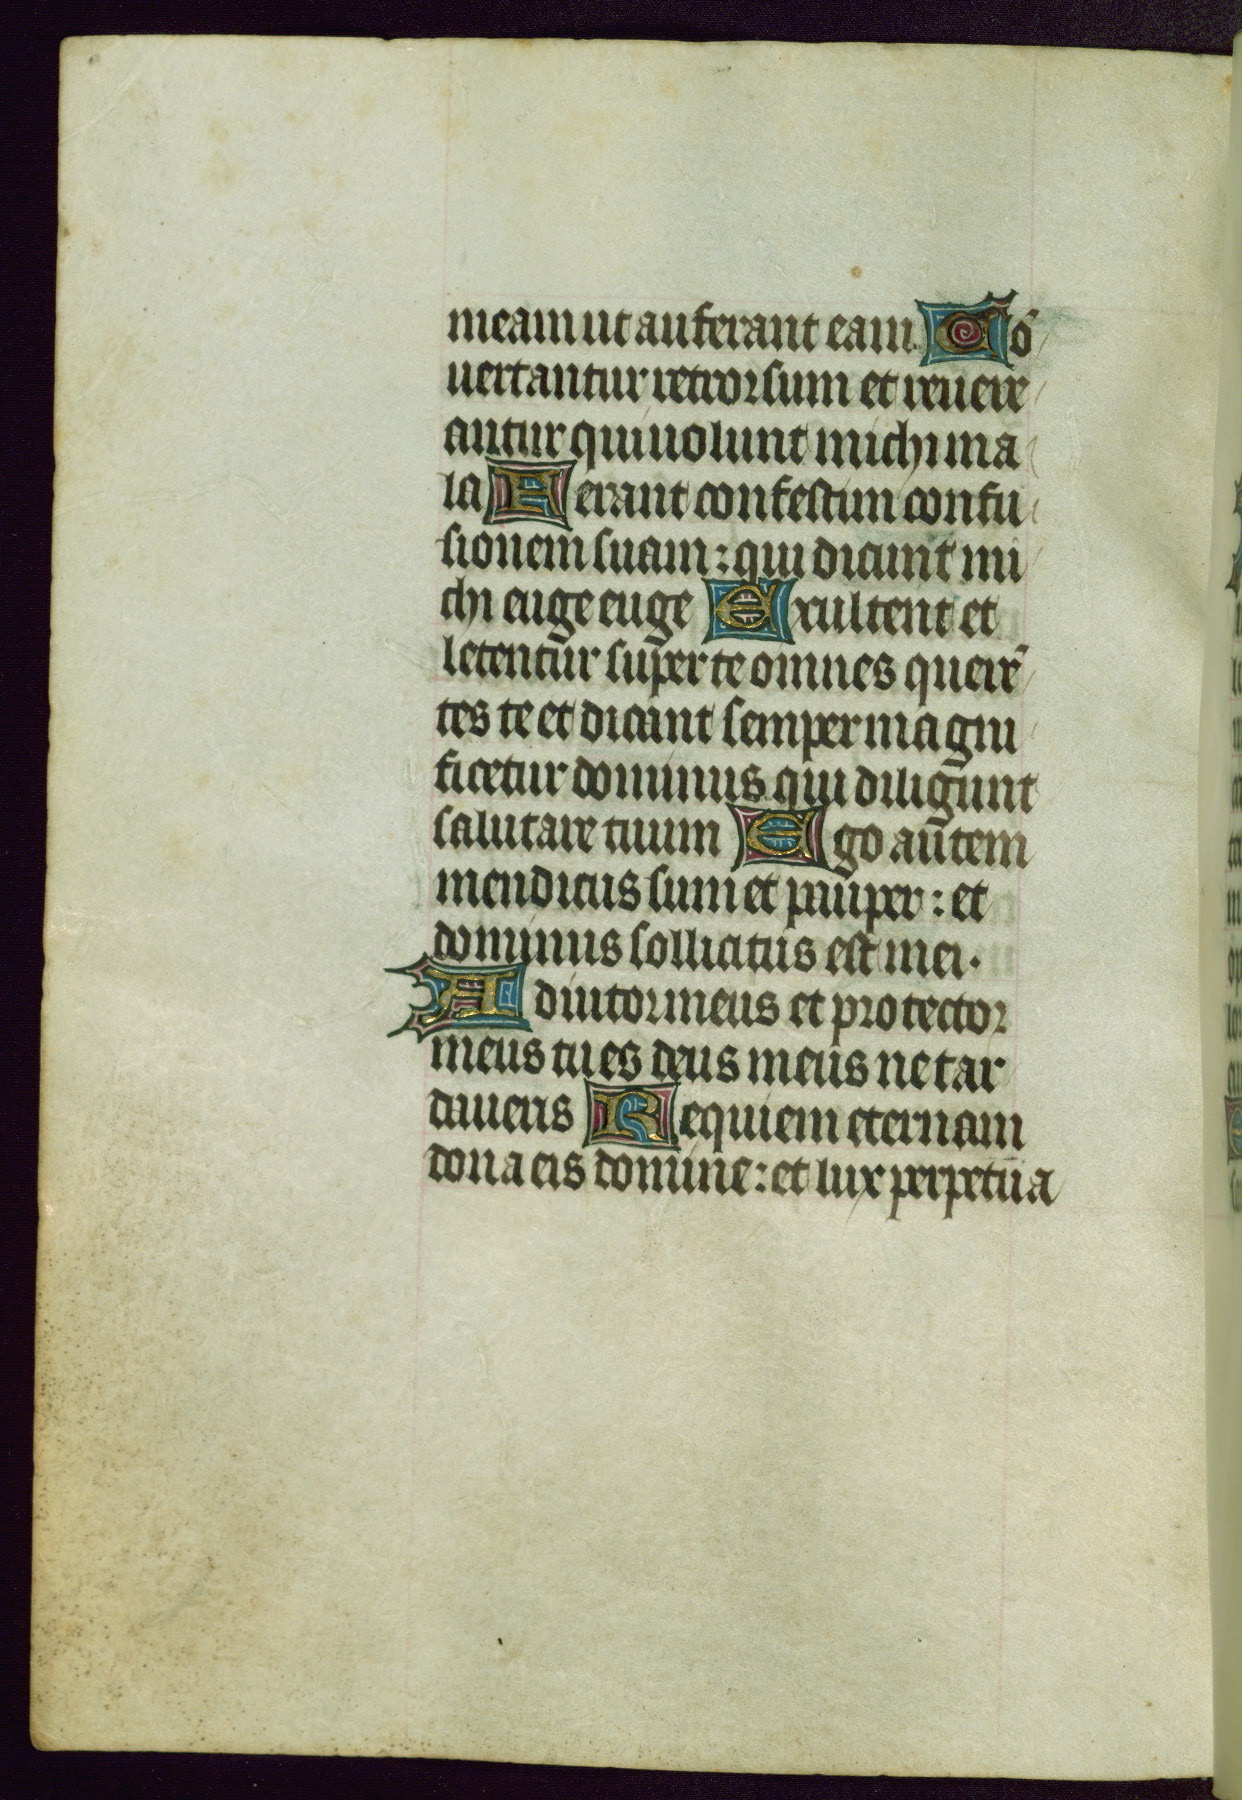 meam ut auferant eam Cō
uertantur retrorsum et reuere
antur qui uolunt michi ma
la Ferant confestim confu
sionem suam : qui dicunt mi
chi euge euge Exultent et
letentur super te omnes querē
tes te et dicant semper magni
ficetur dominus qui diligunt
salutare tuum Ego autem
mendicus sum et pauper : et
dominus sollicitus est mei .
Adiutor meus et protector
meus tu es deus meus ne tar
daueris Requiem eternam
dona eis domine : et lux perpetua